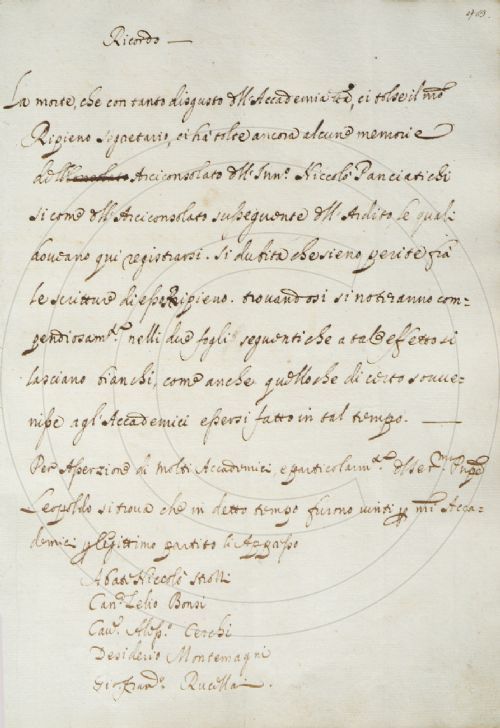 403.
Ricordo —
La morte, che con tanto disgusto dll'Accademia ci tolse il
Ripieno Segretario, ci ha tolte ancora alcune memorie
dell' Arciconsolato dll'Inn.º Niccolò Panciatichi
si come dll'Arciconsolato susseguente dll'Ardito, le quali
doveano qui registrarsi. Si dubita che sieno perite frà
le scritture di esso Ripieno. trovandosi si noteranno com-
pendiosam.te nelli due fogli seguenti che a tale effetto si
lasciano bianchi, come anche quello che di certo souve-
nisse agl'Accademici essersi fatto in tal tempo. —
Per Asserzione di molti Accademici, e particolarm.te del Ser.mo Pnpe
Leopoldo si trova che in detto tempo furono vinti p Accа-
demici p legittimo partito li Appresso
Abate Niccolò Strozzi
Can.co Lelio Bonsi
Cav.r Aless.º Cerchi
Desiderio Montemagni
Gio. Fran.co Rucellai.